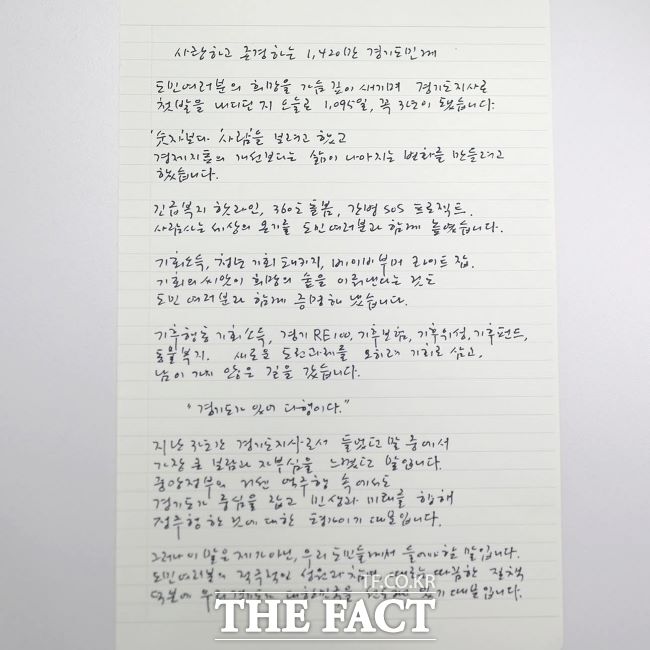 사랑하고 존경하는 1,420만 경기도민께
도민 여러분의 희망을 가슴 깊이 새기며 경기도지사로
첫발을 내디딘 지 오늘로 1,095일, 꼭 3년이 됐습니다.
'숫자'보다 '사람'을 보려고 했고
경제지표의 개선보다는 삶이 나아지는 변화를 만들려고
했습니다.
긴급복지 핫라인, 360도 돌봄, 간병 SOS 프로젝트.
사람사는 세상의 온기를 도민 여러분과 함께 높였습니다.
기회소득, 청년 기회 패키지, 베이비부머 라이트 잡.
기회의 씨앗이 희망의 숲을 이뤄낸다는 것도
도민 여러분과 함께 증명해 냈습니다.
기후행동 기회소득, 경기 RE100, 기후보험, 기후위성, 기후펀드,
동물복지. 새로운 도전과제를 오히려 기회로 삼고,
남이 가지 않은 길을 갔습니다.
"경기도가 있어 다행이다."
지난 3년간 경기도지사로서 들었던 말 중에서
가장 큰 보람과 자부심을 느꼈던 말입니다.
중앙정부의 거센 역주행 속에서도
경기도가 중심을 잡고 민생과 미래를 향해
정주행 한 것에 대한 평가이기 때문입니다.
그러나 이 말은 제가 아닌, 우리 도민들께서 들어야 할 말입니다.
도민 여러분의 적극적인 성원과 참여, 때로는 따끔한 질책
덕분에 우리 경기도가, 대한민국을 있기 때문입니다.
TF.CO.KR
THE FACT